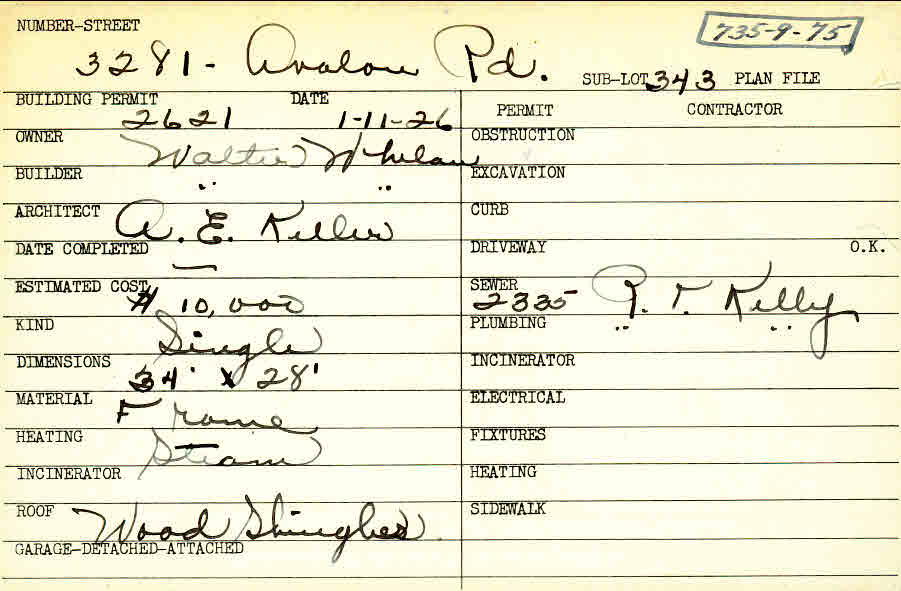 NUMBER-STREET
735-9-75
3281- Avalon Rd.
SUB-LOT 343 PLAN FILE
BUILDING PERMIT DATE
2621 1-11-26
PERMIT CONTRACTOR
OWNER Walter Whelan
OBSTRUCTION
BUILDER " "
EXCAVATION
ARCHITECT A. E. Keller
CURB
DATE COMPLETED —
DRIVEWAY O.K.
ESTIMATED COST $ 10,000
SEWER 2335 R. T. Kelly
KIND Single
PLUMBING " "
DIMENSIONS 34' x 28'
INCINERATOR
MATERIAL Frame
ELECTRICAL
HEATING Steam
FIXTURES
INCINERATOR
HEATING
ROOF Wood Shingles
SIDEWALK
GARAGE-DETACHED-ATTACHED